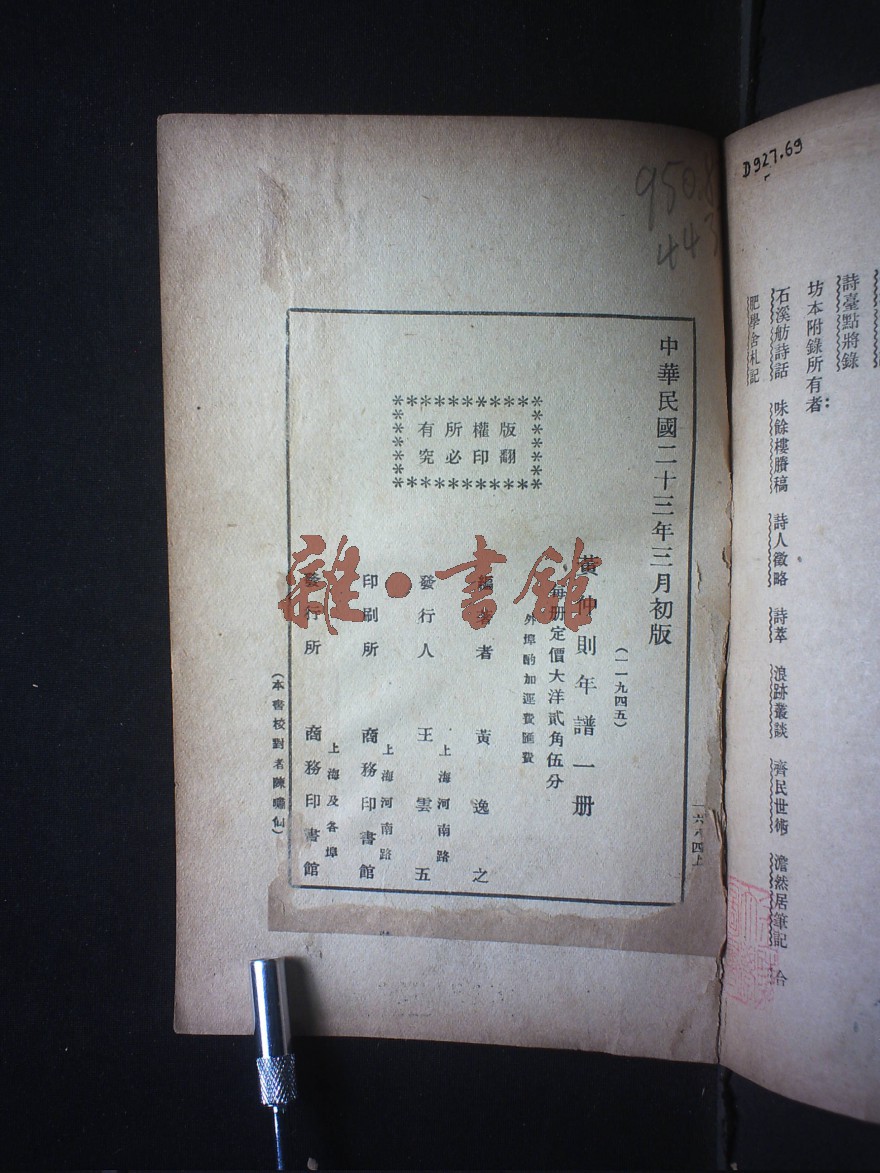 D927.69
詩臺點將錄
坊本附錄所有者：
石溪舫詩話 味餘樓賸稿 詩人徵略 詩萃 浪跡叢談 齊民世術 澹然居筆記 合
肥學舍札記
中華民國二十三年三月初版
(一一九四五)
黃仲則年譜一册
每册定價大洋貳角伍分
外埠酌加運費匯費
版權所有
翻印必究
編著者 黃逸之
發行人 王雲五
上海河南路
印刷所 商務印書館
上海河南路
發行所 商務印書館
上海及各埠
(本書校對者陳嘯仙)
雜·書館